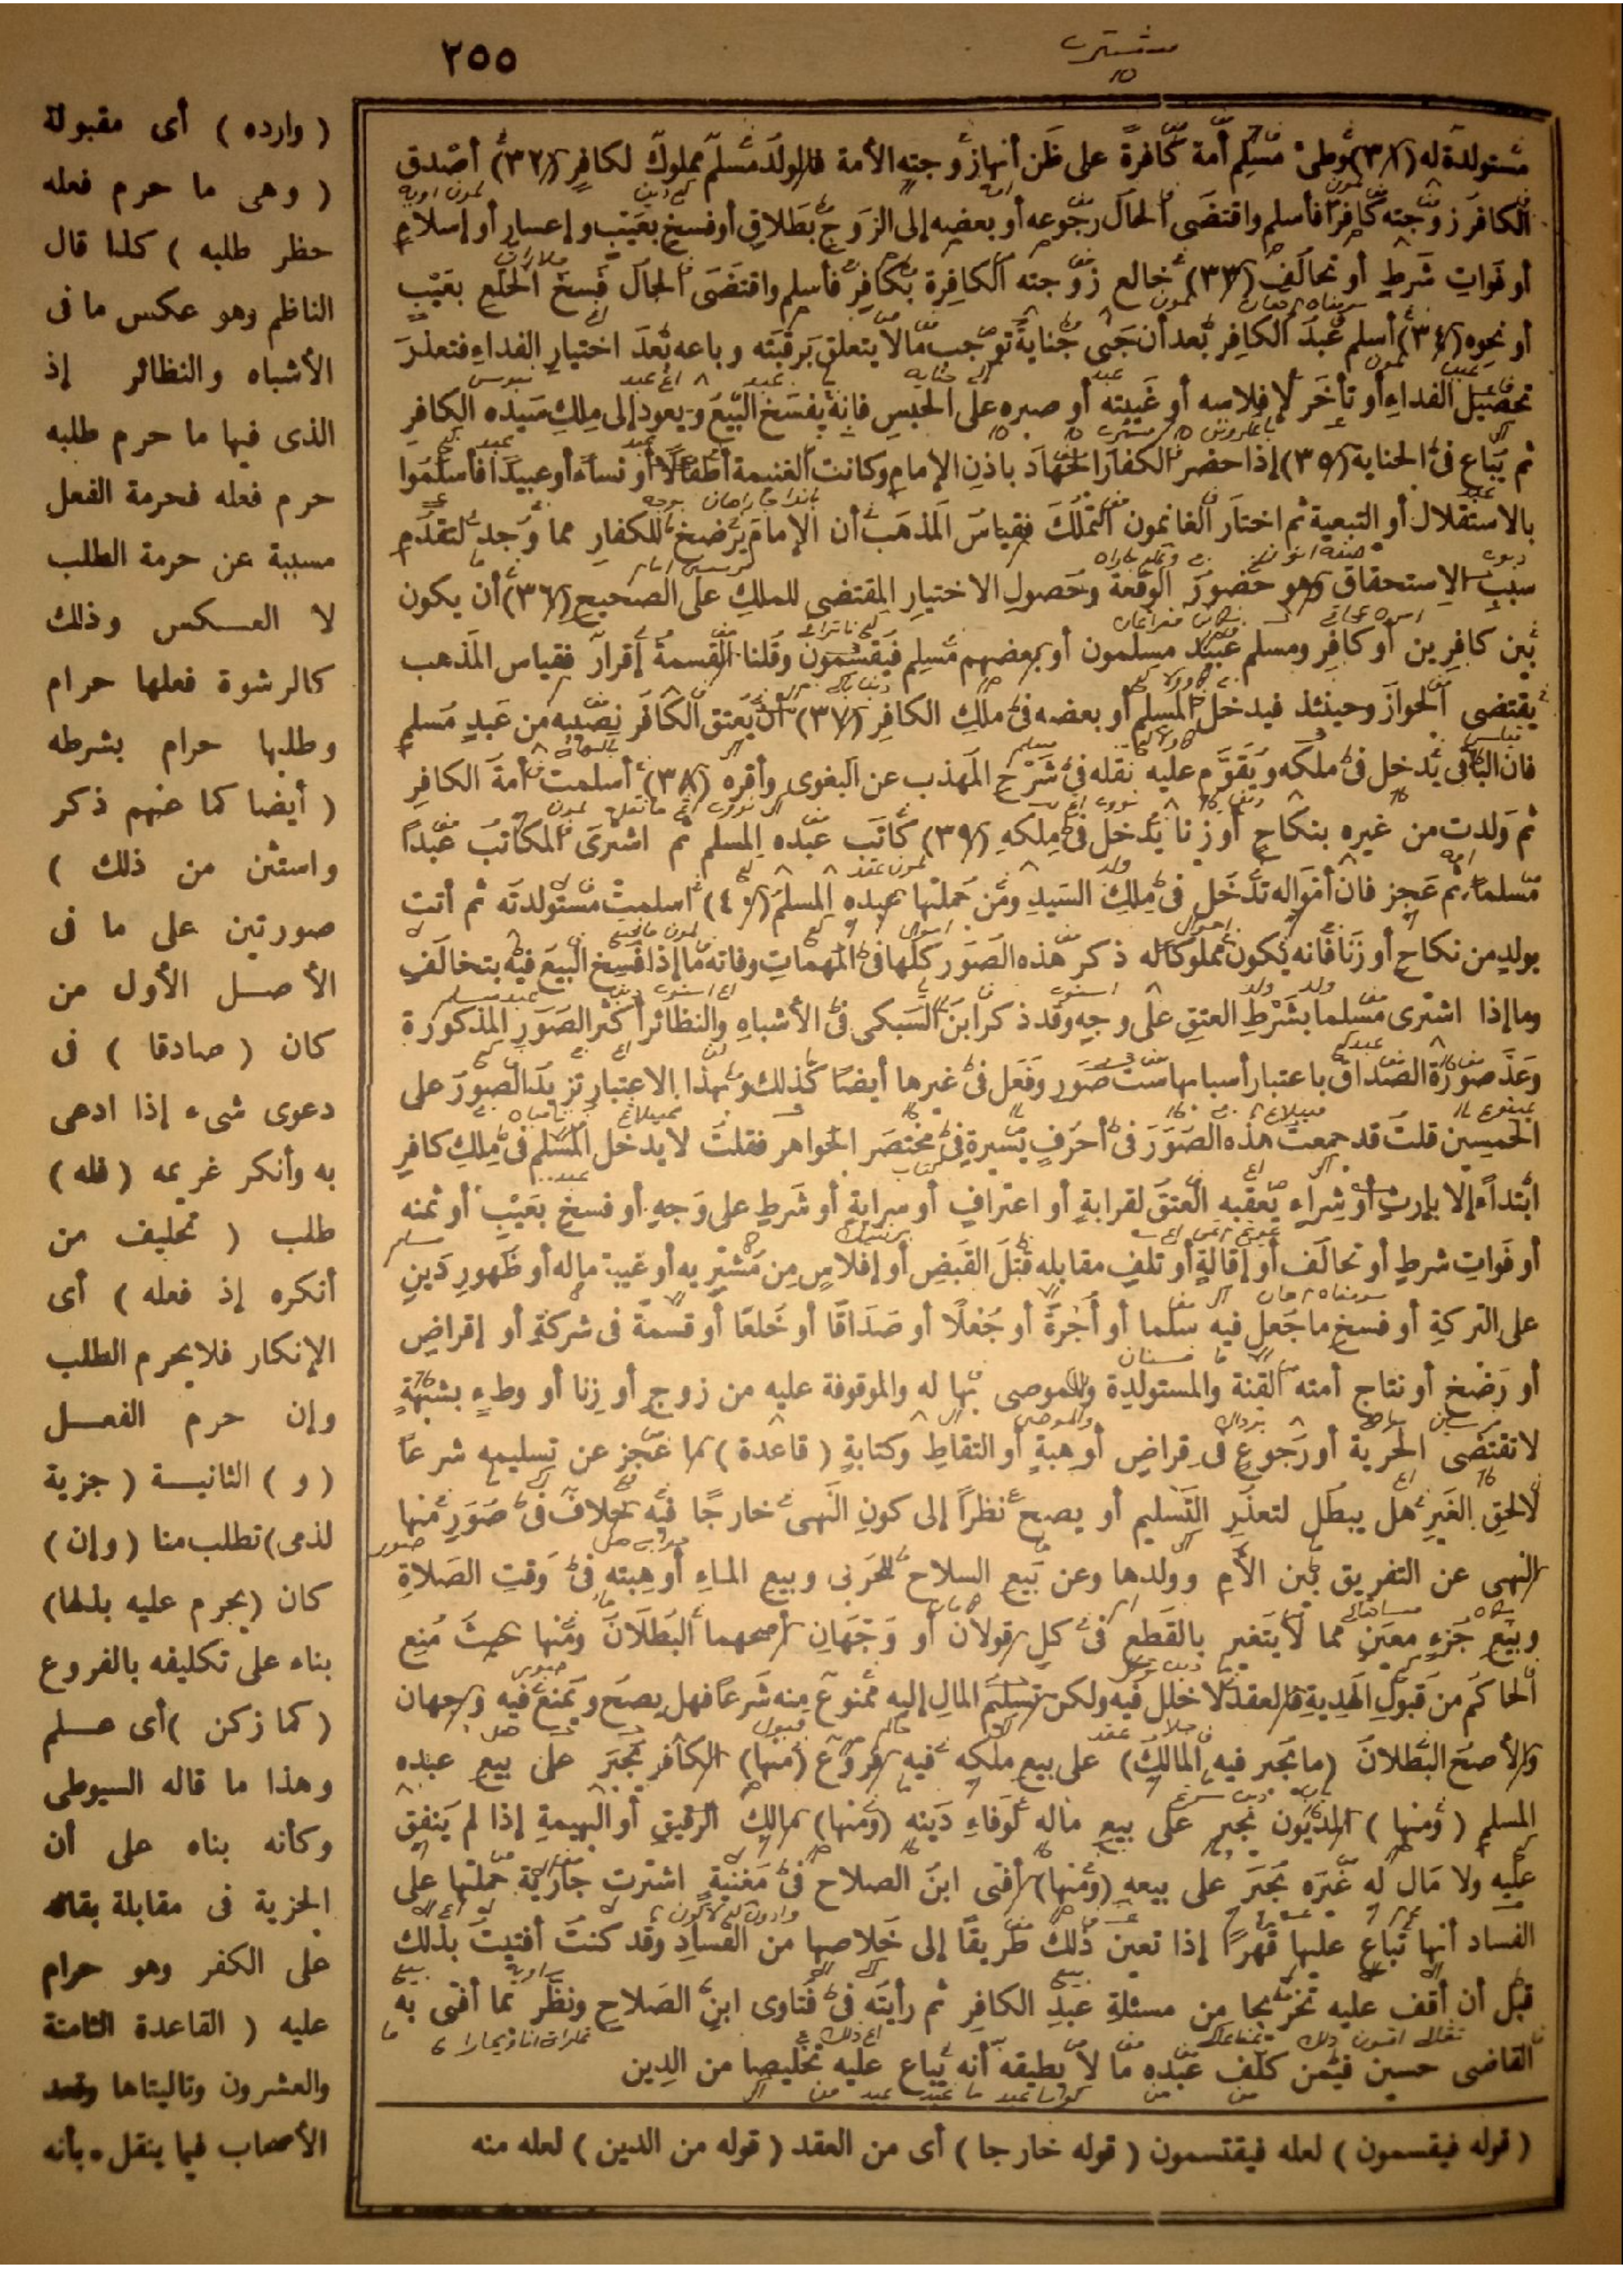 ٢٥٥
مستولدة له (٣١) وطئ مسلم أمة كافرة على ظن أنها زوجته الأمة فالولد مسلم مملوك لكافر (٣٢) أصدق
الكافر زوجته كافرا فأسلم واقتضى الحال رجوعه أو بعضه إلى الزوج بطلاق أو فسخ بعيب وإعسار أو إسلام
أو فوات شرط أو تحالف (٣٣) خالع زوجته الكافرة بكافر فأسلم واقتضى الحال فسخ الخلع بعيب
أو نحوه (٣٤) أسلم عبد الكافر بعد أن جنى جناية توجب مالا يتعلق برقبته وباعه بعد اختيار الفداء فتعذر
تحصيل الفداء أو تأخر لإفلاسه أو غيبته أو صبره على الحبس فإنه يفسخ البيع ويعود إلى ملك سيده الكافر
ثم يباع فى الجناية (٣٥) إذا حضر الكفار الجهاد باذن الإمام وكانت الغنيمة أطفالا أو نساء أو عبيدا فأسلموا
بالاستقلال أو التبعية ثم اختار الغانمون التملك فقياس المذهب أن الإمام يرضخ للكفار مما وجد لتقدم
سبب الاستحقاق وهو حضور الوقعة وحصول الاختيار المقتضى للملك على الصحيح (٣٦) أن يكون
بين كافرين أو كافر ومسلم عبيد مسلمون أو بعضهم مسلم فيقسمون وقلنا القسمة إقرار فقياس المذهب
يقتضى الجواز وحينئذ فيدخل المسلم أو بعضه فى ملك الكافر (٣٧) أن يعتق الكافر نصيبه من عبد مسلم
فان الباقى يدخل فى ملكه ويقوم عليه نقله فى شرح المهذب عن البغوى وأقره (٣٨) أسلمت أمة الكافر
ثم ولدت من غيره بنكاح أو زنا يدخل فى ملكه (٣٩) كاتب عبده المسلم ثم اشترى المكاتب عبدا
مسلما ثم عجز فان أمواله تدخل فى ملك السيد ومن جملتها عبده المسلم (٤٠) أسلمت مستولدته ثم أتت
بولد من نكاح أو زنا فانه يكون مملوكا له ذكر هذه الصور كلها فى المهمات وفاته ما إذا فسخ البيع فيه بتخالف
وما إذا اشترى مسلما بشرط العتق على وجه وقد ذكر ابن السبكى فى الأشباه والنظائر أكثر الصور المذكورة
وعد صورة الصداق باعتبار أسبابها ست صور وفعل فى غيرها أيضا كذلك وبهذا الاعتبار تزيد الصور على
الخمسين قلت قد جمعت هذه الصور فى أحرف يسيرة فى مختصر الجواهر فقلت لا يدخل المسلم فى ملك كافر
ابتداء إلا بإرث أو شراء يعقبه العتق لقرابة أو اعتراف أو سراية أو شرط على وجه أو فسخ بعيب أو ثمنه
أو فوات شرط أو تحالف أو إقالة أو تلف مقابله قبل القبض أو إفلاس من مشتر به أو غيبة ماله أو ظهور دين
على التركة أو فسخ ما جعل فيه سلما أو أجرة أو جعلا أو صداقا أو خلعا أو قسمة فى شركة أو إقراض
أو رضخ أو نتاج أمته القنة والمستولدة والموصى بها له والموقوفة عليه من زوج أو زنا أو وطء بشبهة
لا تقتضى الحرية أو رجوع فى قراض أو هبة أو التقاط وكتابة (قاعدة) ما عجز عن تسليمه شرعا
لا لحق الغير هل يبطل لتعذر التسليم أو يصح نظرا إلى كون النهى خارجا فيه خلاف فى صور منها
النهى عن التفريق بين الأم وولدها وعن بيع السلاح للحربى وبيع الماء أو هبته فى وقت الصلاة
وبيع جزء معين مما لا يتغير بالقطع فى كل قولان أو وجهان أصحهما البطلان ومنها حيث منع
الحاكم من قبول الهدية فالعقد لا خلل فيه ولكن تسليم المال إليه ممنوع منه شرعا فهل يصح ويمنع فيه وجهان
والأصح البطلان (ما يجبر فيه المالك) على بيع ملكه فيه فروع (منها) الكافر يجبر على بيع عبده
المسلم (ومنها) المديون يجبر على بيع ماله لوفاء دينه (ومنها) مالك الرقيق أو البهيمة إذا لم ينفق
عليه ولا مال له غيره يجبر على بيعه (ومنها) أفتى ابن الصلاح فى مغنية اشترت جارية حملتها على
الفساد أنها تباع عليها قهرا إذا تعين ذلك طريقا إلى خلاصها من الفساد وقد كنت أفتيت بذلك
قبل أن أقف عليه تخريجا من مسئلة عبد الكافر ثم رأيته فى فتاوى ابن الصلاح ونظر بما أفتى به
القاضى حسين فيمن كلف عبده ما لا يطيقه أنه يباع عليه تخليصا من الدين
(قوله فيقسمون) لعله فيقتسمون (قوله خارجا) أى من العقد (قوله من الدين) لعله منه
(وارده) أى مقبولة
(وهى ما حرم فعله
حظر طلبه) كذا قال
الناظم وهو عكس ما فى
الأشباه والنظائر إذ
الذى فيها ما حرم طلبه
حرم فعله فحرمة الفعل
مسببة عن حرمة الطلب
لا العكس وذلك
كالرشوة فعلها حرام
وطلبها حرام بشرطه
(أيضا كما عنهم ذكر
واستثن من ذلك)
صورتين على ما فى
الأصل الأول من
كان (صادقا) فى
دعوى شىء إذا ادعى
به وأنكر غريمه (فله)
طلب (تحليف من
أنكره إذ فعله) أى
الإنكار فلا يحرم الطلب
وإن حرم الفعل
(و) الثانية (جزية
لذمى) تطلب منا (وإن)
كان (يحرم عليه بذلها)
بناء على تكليفه بالفروع
(كما زكن) أى علم
وهذا ما قاله السيوطى
وكأنه بناه على أن
الجزية فى مقابلة بقائه
على الكفر وهو حرام
عليه (القاعدة الثامنة
والعشرون وتاليتاها وقد
الأصحاب فيما ينقل، بأنه